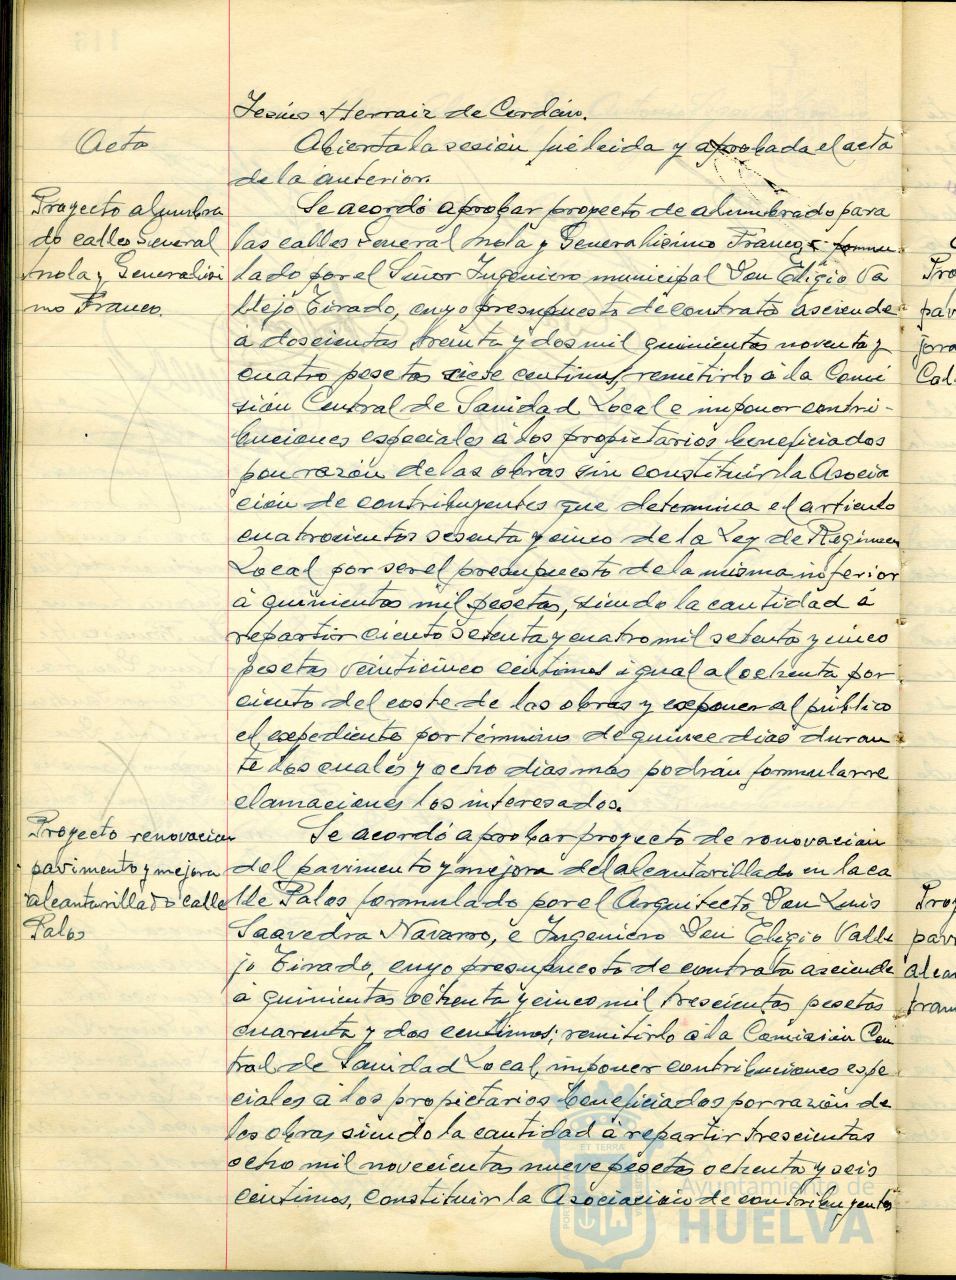 Jesús Herraiz de Cordán.
Acta
Abierta la sesión fué leida y aprobada el acta
de la anterior.
Proyecto alumbra
do calles General
Mola y Generalísi
mo Franco.
Se acordó aprobar proyecto de alumbrado para
las calles General Mola y Generalísimo Franco, formu
lado por el Señor Ingeniero municipal Don Eligio Va
llejo Tirado, cuyo presupuesto de contrata asciende
á doscientas treinta y dos mil quinientas noventa y
cuatro pesetas siete centimos, remitirlo á la Comi
sión Central de Sanidad Local e imponer contri-
buciones especiales á los propietarios beneficiados
por razón de las obras sin constituir la Asocia
ción de contribuyentes que determina el articulo
cuatrocientos sesenta y cinco de la Ley de Régimen
Local por ser el presupuesto de la misma inferior
á quinientas mil pesetas, siendo la cantidad á
repartir ciento setenta y cuatro mil setenta y cinco
pesetas veinticinco centimos igual al ochenta por
ciento del coste de las obras y exponer al público
el expediente por término de quince dias duran
te los cuales y ocho dias mas podrán formular re
clamaciones los interesados.
Proyecto renovacion
pavimento y mejora
alcantarillado calle
Palos
Se acordó aprobar proyecto de renovación
del pavimento y mejora del alcantarillado en la ca
lle Palos formulado por el Arquitecto Don Luis
Saavedra Navarro, e Ingeniero Don Eligio Valle
jo Tirado, cuyo presupuesto de contrata asciende
á quinientas ochenta y cinco mil trescientas pesetas
cuarenta y dos centimos; remitirlo á la Comisión Cen
tral de Sanidad Local, imponer contribuciones espe
ciales á los propietarios beneficiados por razón de
las obras siendo la cantidad á repartir trescientas
ocho mil novecientas nueve pesetas ochenta y seis
centimos, constituir la Asociación de contribuyentes
Ayuntamiento de
HUELVA